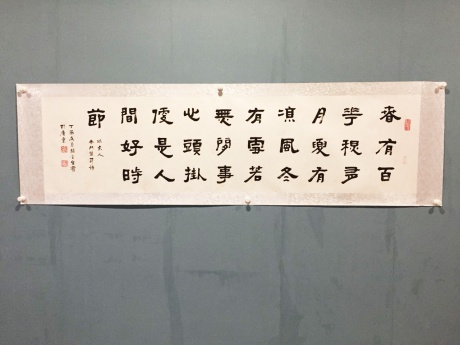 春有百
花穐有
月夏有
涼風冬
有雪若
無閒事
心頭掛
便是人
間好時
節